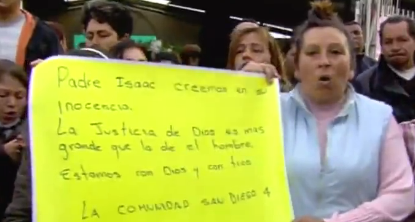 Padre Isaac creemos en su
inocencia.
La Justicia de Dios no mas
grande que la de el hombre.
Estamos con Dios y con
LA COMUNIDAD SAN DIEGO